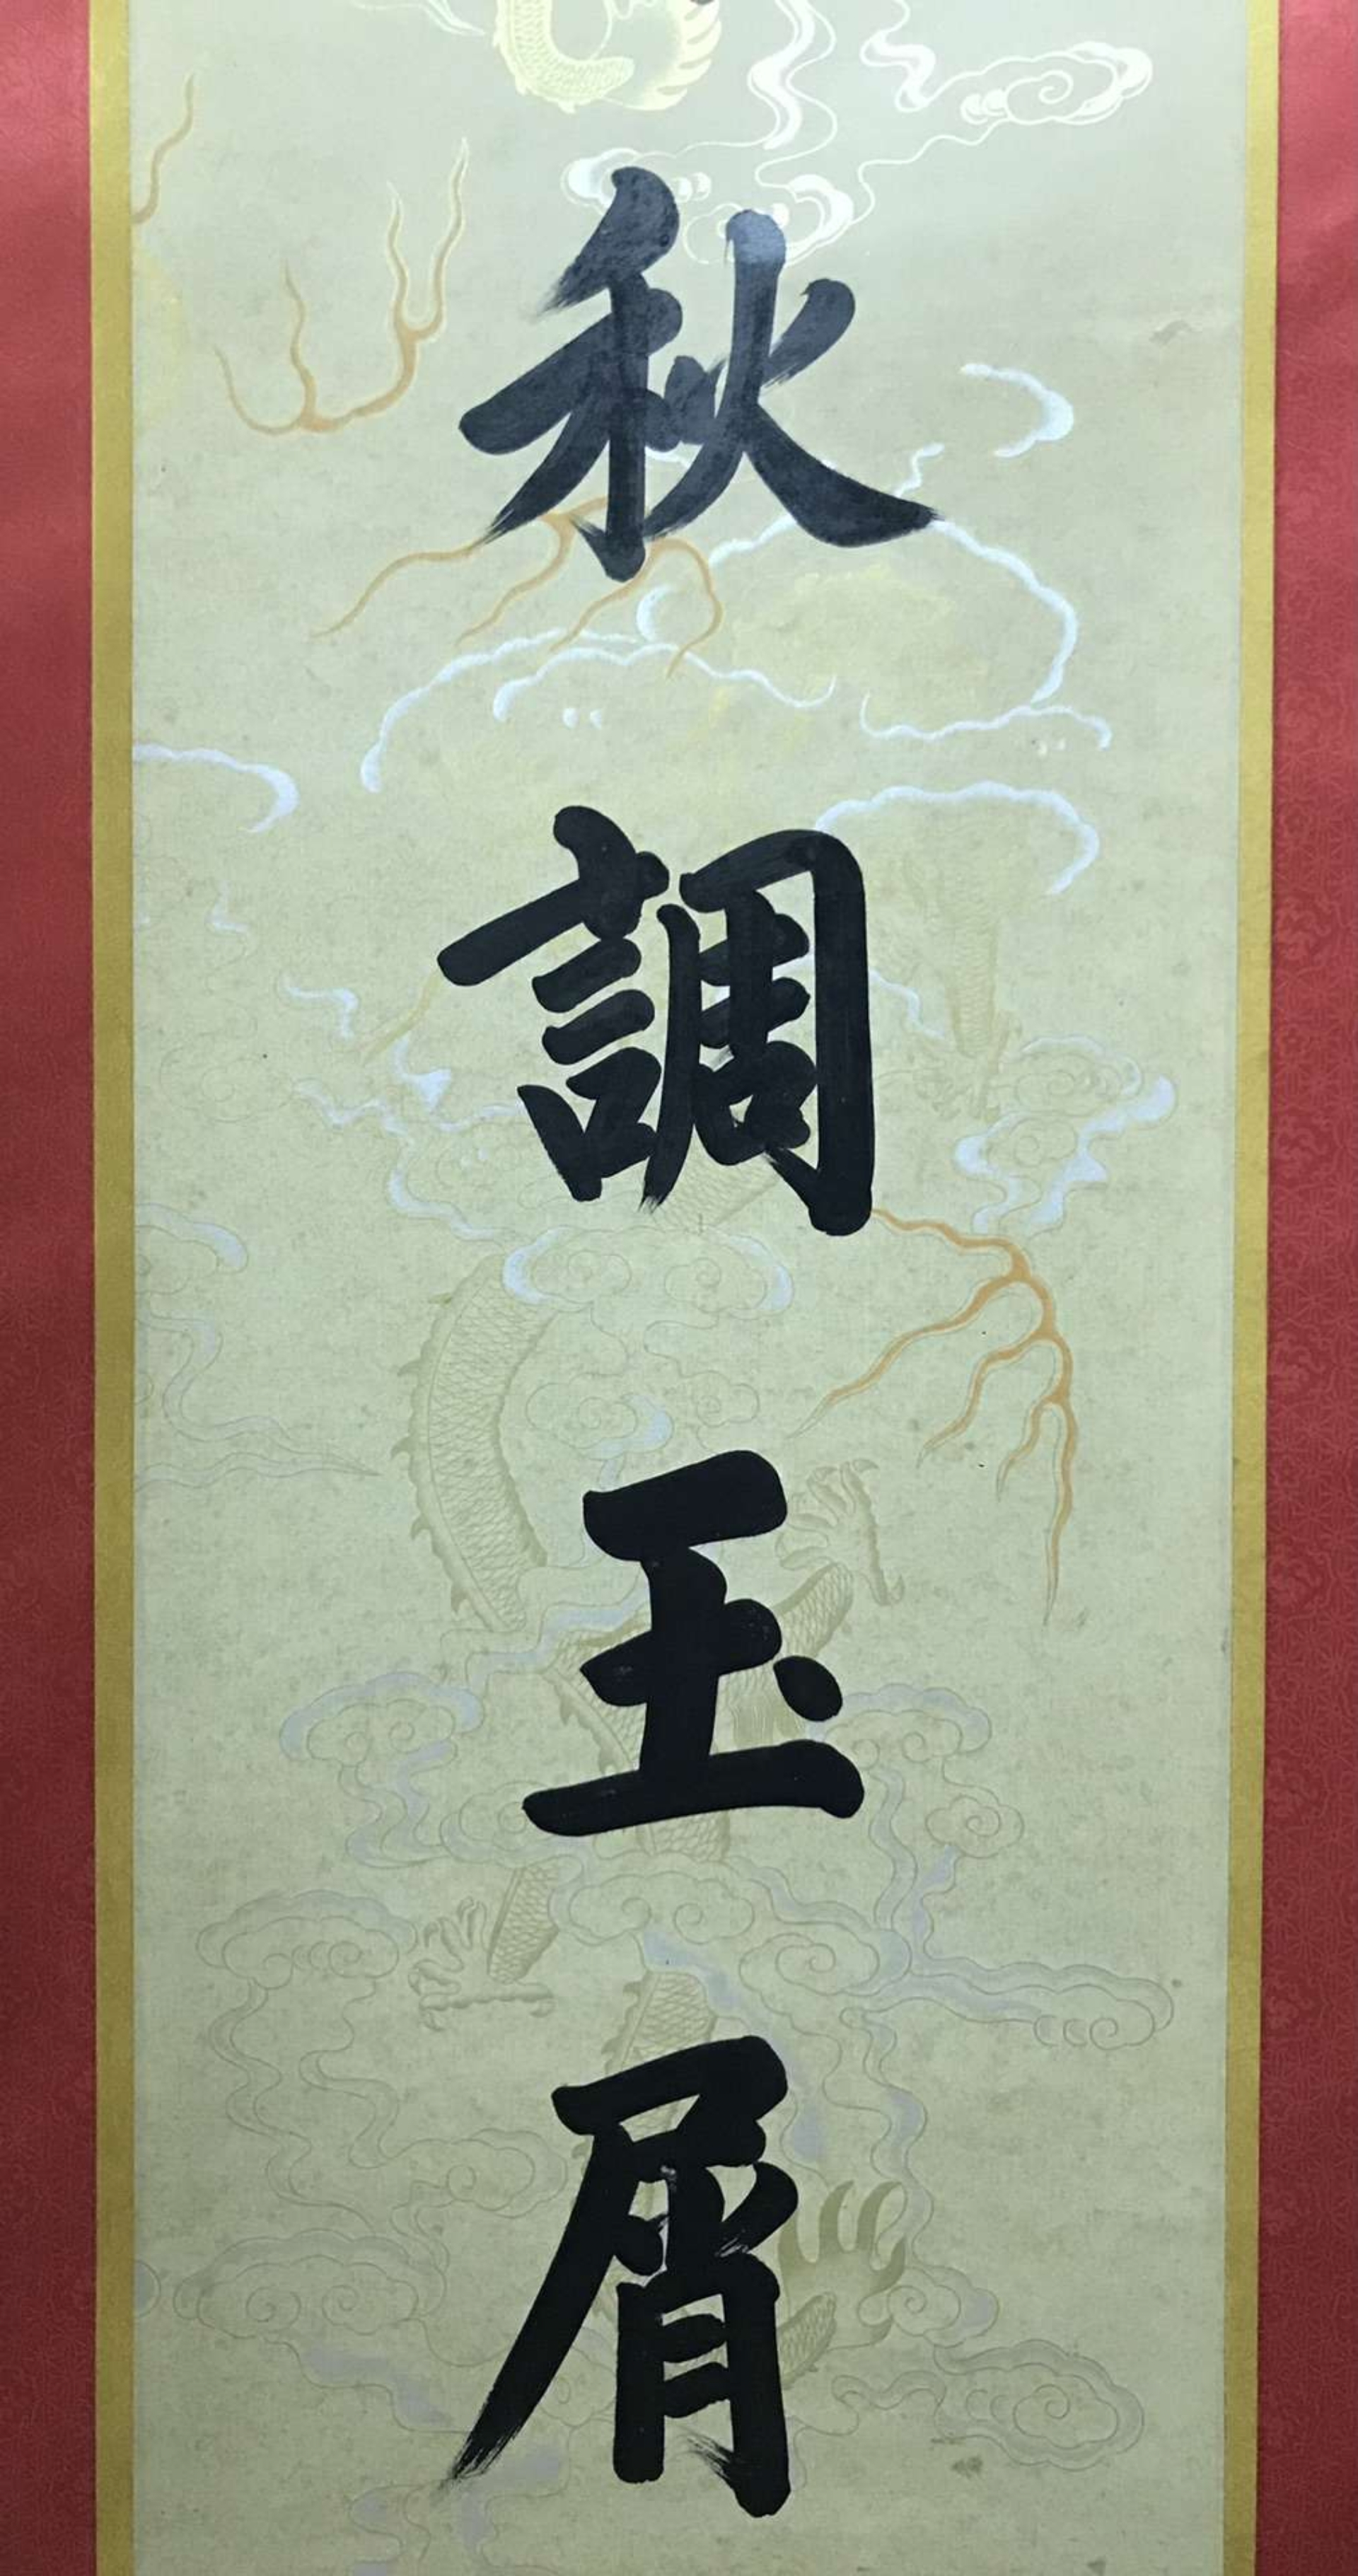 秋調玉屑